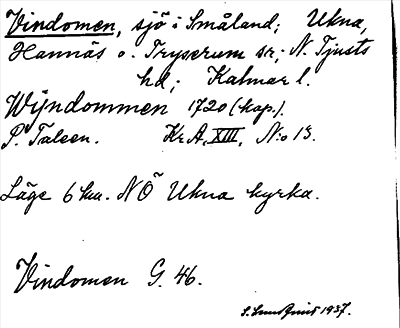 Vindomen, sjö i Småland; Ukna,
Hannäs o. Tryserum sr; N. Tjusts
hd; Kalmar l.
Wijndommen 1720 (kop.).
P. Taleen. Kr A, XIII, N:o 13.
Läge 6 km. NÖ Ukna kyrka.
Vindomen G. 46.
1937.